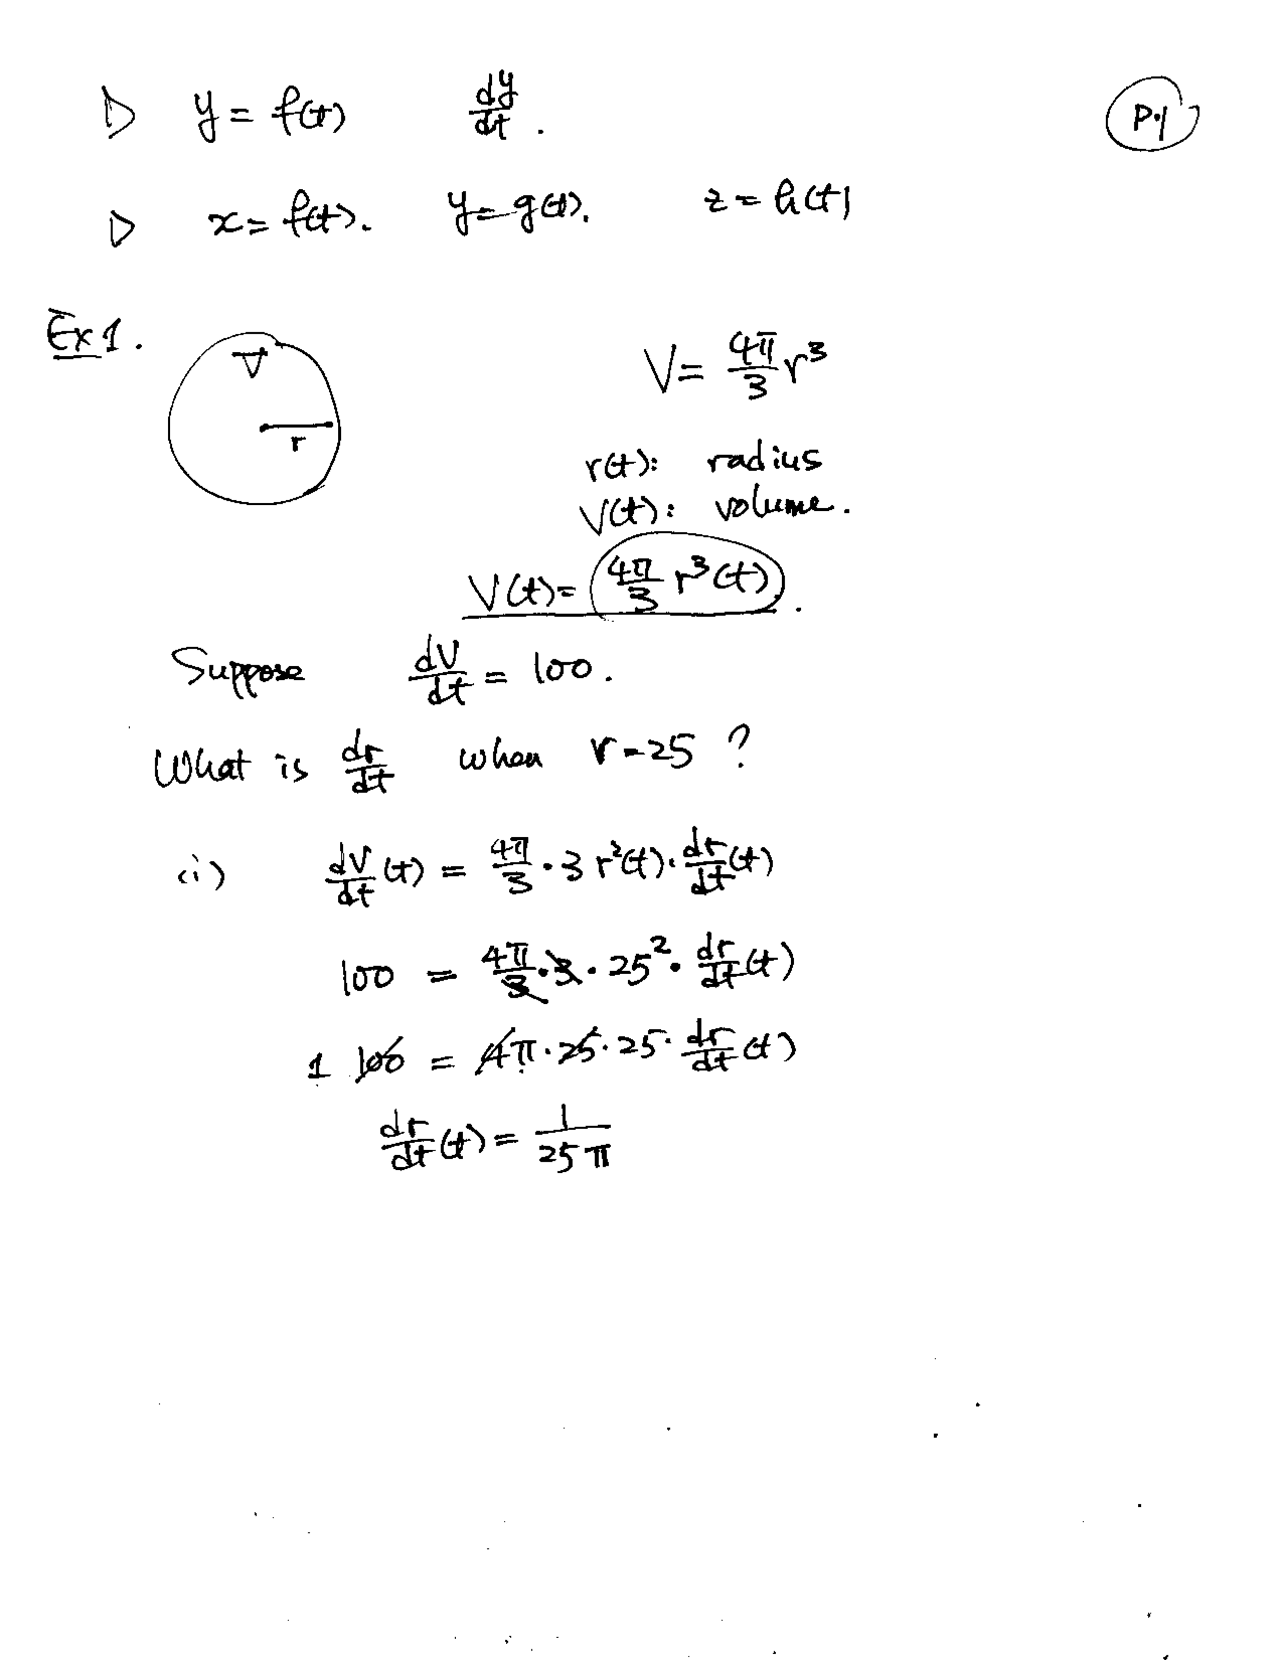 ▷ y = f(t) dy/dt . P.1
▷ x = f(t). y = g(t). z = h(t)
Ex 1.
V
r
V = 4π/3 r³
r(t): radius
V(t): volume.
V(t) = 4π/3 r³(t) .
Suppose dV/dt = 100 .
What is dr/dt when r = 25 ?
(i) dV/dt (t) = 4π/3 · 3 r²(t) · dr/dt (t)
100 = 4π/3 · 3 · 25² · dr/dt (t)
1 100 = 4π · 25 · 25 · dr/dt (t)
dr/dt (t) = 1/25π